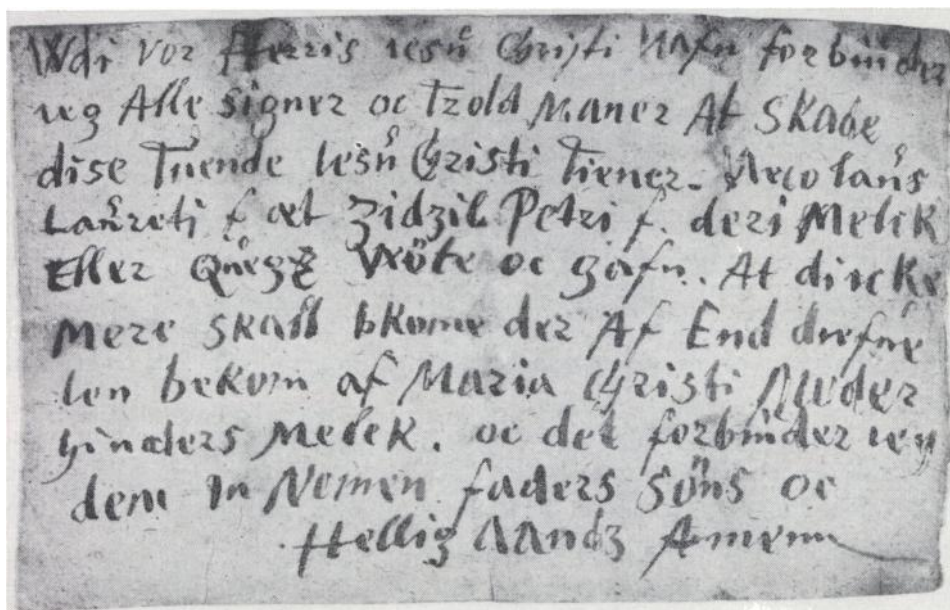 Wdi vor Herris iesů Christi Nafn forbinder
ieg Alle signer oc Trold Maner At skade
dise Tuende Iesů Christi Tiener. Necolaůs
Laůreti f oct Zidzil Petri f. deri Melck
Eller Qůegz Nöte oc gafn. At di icke
Mere skall bkome der Af End diefue
len bekom af Maria Christi Moder
hinders Melck. oc det forbinder ieg
dem In Nemen faders Söns oc
Hellig AAndz Amenn